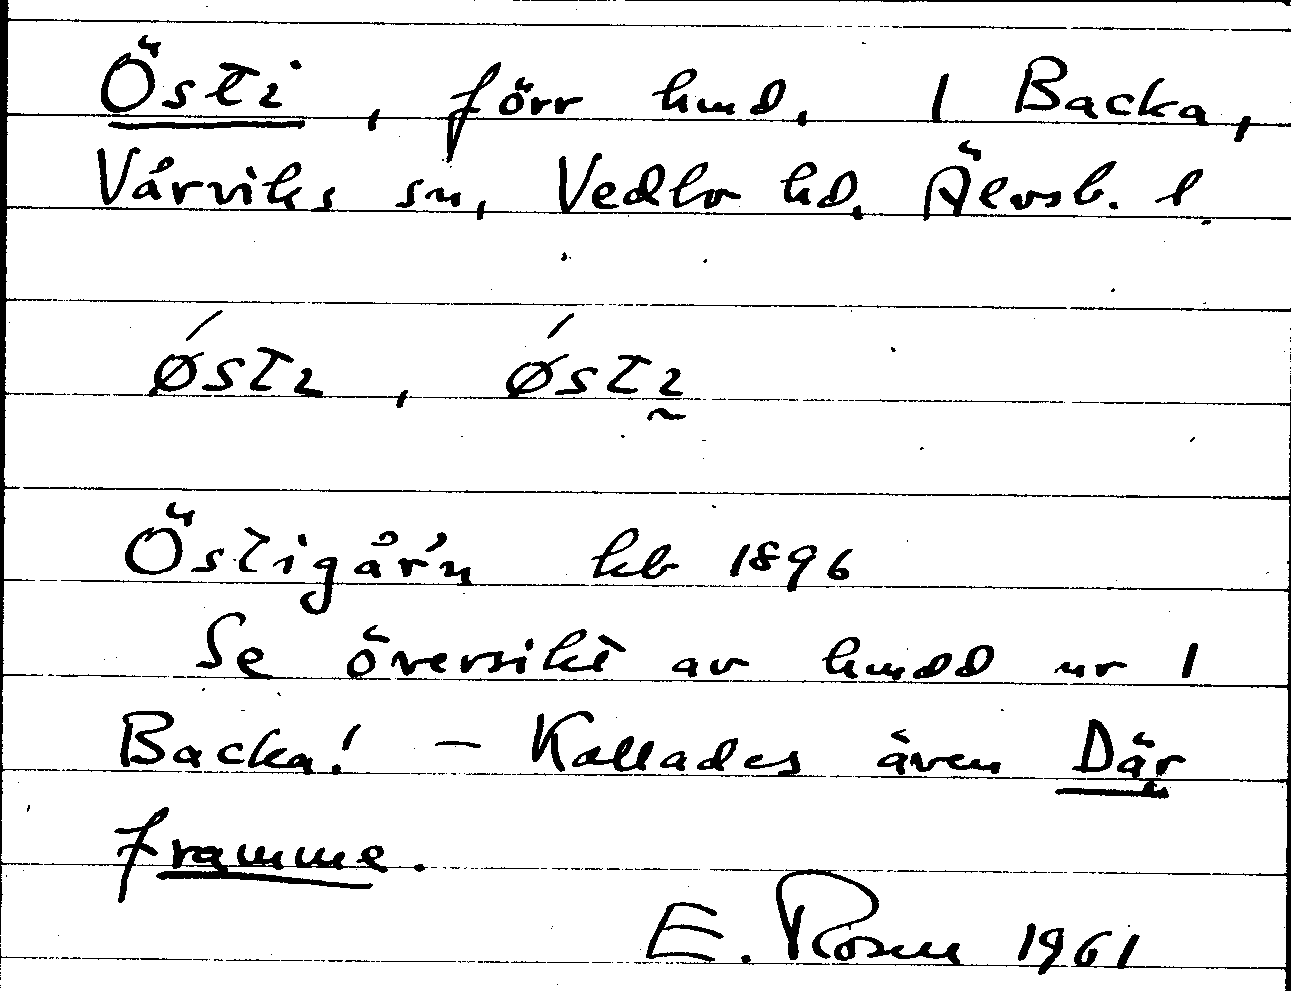 Östi, förr hmd. 1 Backa,
Vårviks sn, Vedbo hd. Älvsb. l.
ǿstɩ, ǿstɩ̰
Östigår'n kb 1896
Se översikt av hmdd nr 1
Backa! – Kallades även Där
framme.
E. Rosen 1961